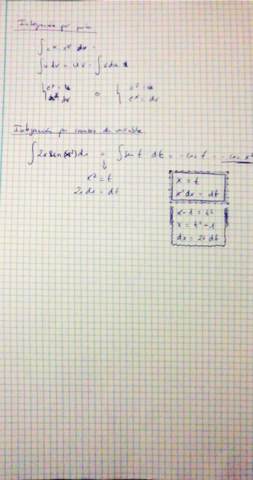 Integración por partes
∫ x · e^x dx =
∫ u dv = u·v - ∫ v du
{ e^x = u   o   { x = u
dv   e^x = dv
Integración por cambio de variable
∫ 2x sen(x²) dx = ∫ sen t dt = - cos t = - cos x²
x² = t
2x dx = dt
x = t
dx = dt
x - 1 = t²
x = t² + 1
dx = 2t dt